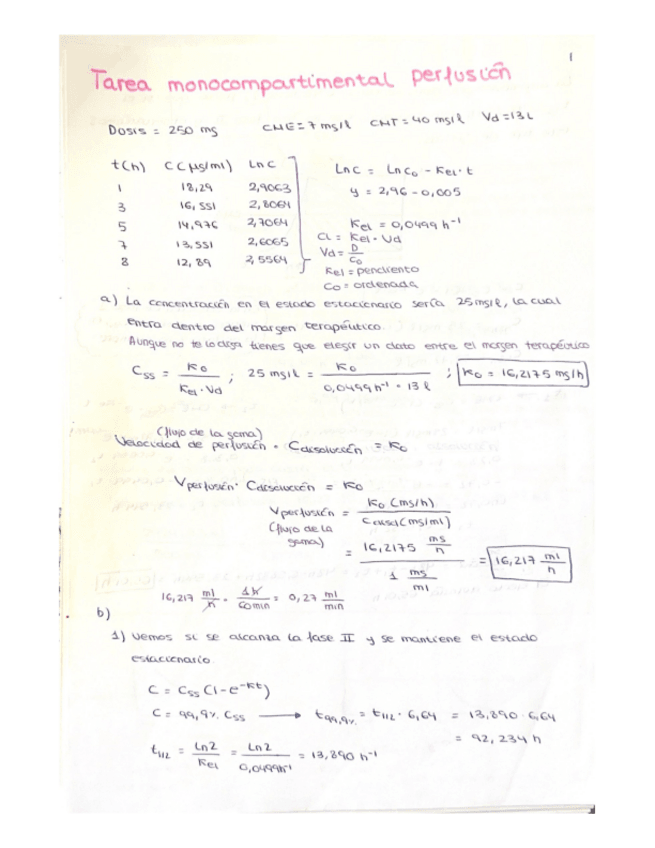 1
Tarea monocompartimental perfusión
Dosis = 250 mg CME = 7 mg/l CMT = 40 mg/l Vd = 13 L
t(h) C(µg/ml) Ln C
1 18,29 2,9063
3 16,551 2,8064
5 14,976 2,7064
7 13,551 2,6065
8 12,89 2,5564
Ln C = Ln C₀ - Kel · t
y = 2,96 - 0,005
Kel = 0,0499 h⁻¹
Cl = Kel · Vd
Vd = D / C₀
Kel = pendiente
C₀ = ordenada
a) La concentración en el estado estacionario sería 25 mg/l, la cual
entra dentro del margen terapéutico.
Aunque no te lo diga tienes que elegir un dato entre el margen terapéutico
Css = K₀ / Kel · Vd ; 25 mg/l = K₀ / 0,0499 h⁻¹ · 13 l ; K₀ = 16,2175 mg/h
(flujo de la goma)
Velocidad de perfusión · Cdisolución = K₀
Vperfusión · Cdisolución = K₀
Vperfusión = K₀ (mg/h) / Cdisol (mg/ml)
(flujo de la goma)
= 16,2175 mg/h / 1 mg/ml = 16,217 ml/h
16,217 ml/h · 1h/60min = 0,27 ml/min
b)
1) Vemos si se alcanza la fase II y se mantiene el estado
estacionario.
C = Css (1-e⁻ᴷᵗ)
C = 99,9% Css ⟶ t99,9% = t1/2 · 6,64 = 13,890 · 6,64
= 92,234 h
t1/2 = Ln2 / Kel = Ln2 / 0,0499h⁻¹ = 13,890 h⁻¹